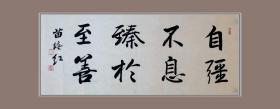 自彊
不息
臻於
至善
苗培红